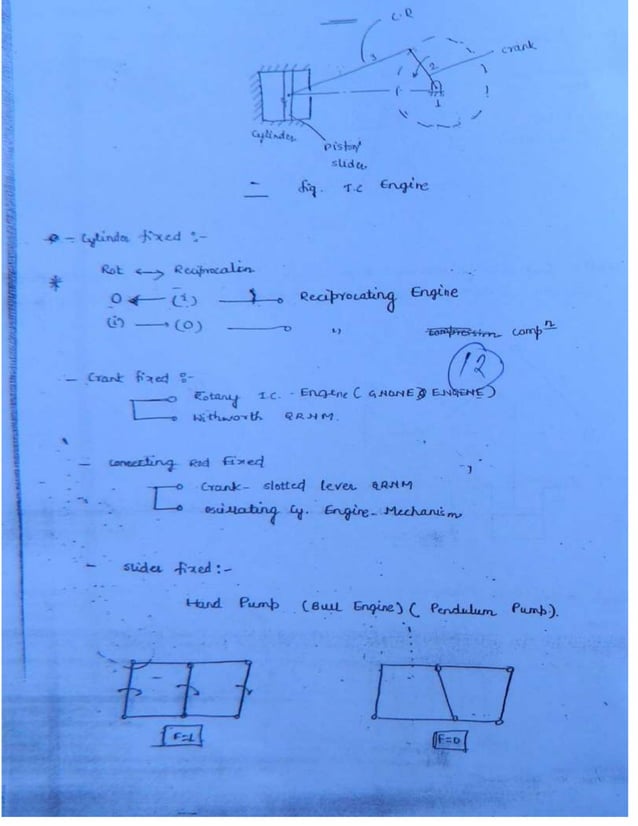 C.R
crank
3
2
1
Cylinder
Piston
slider
fig. I.C Engine
- Cylinder fixed :-
Rot <-> Reciprocation
* O ← (i) Reciprocating Engine
(i) → (O) " compⁿ
12
- Crank fixed :-
Rotary I.C. - Engine ( GNOME ENGENE )
Withworth QRMM.
- connecting Rod fixed
Crank - slotted lever QRMM
oscillating Cy. Engine - Mechanism
- slider fixed :-
Hand Pump (Bull Engine) ( Pendulum Pump).
F=1
F=0